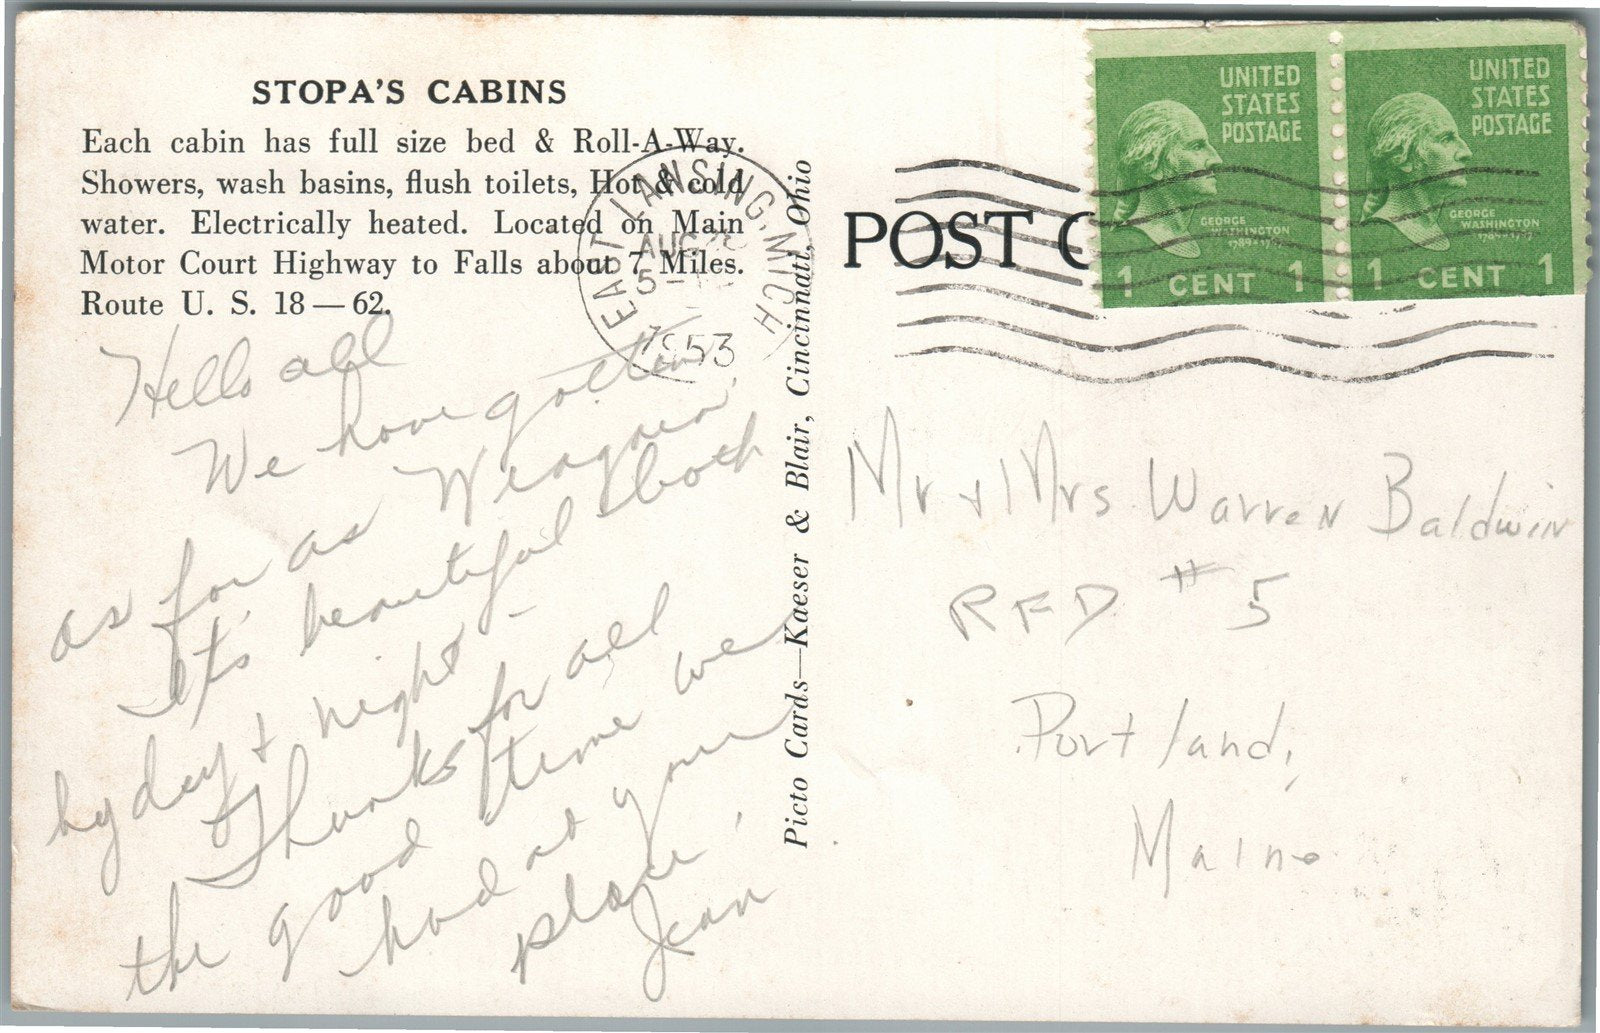 STOPA'S CABINS
Each cabin has full size bed & Roll-A-Way.
Showers, wash basins, flush toilets, Hot & cold
water. Electrically heated. Located on Main
Motor Court Highway to Falls about 7 Miles.
Route U. S. 18 — 62.
Hello all
We have gotten
as far as
It's beautiful both
by day & night -
Thanks for all
the good time we
had at your
place.
Jean
EAST LANSING, MICH
AUG
5 -
1953
Picto Cards—Kaeser & Blair, Cincinnati, Ohio
POST C
UNITED
STATES
POSTAGE
GEORGE
WASHINGTON
1789-1797
1 CENT 1
UNITED
STATES
POSTAGE
GEORGE
WASHINGTON
1789-1797
1 CENT 1
Mr + Mrs Warren Baldwin
RFD # 5
Portland,
Maine